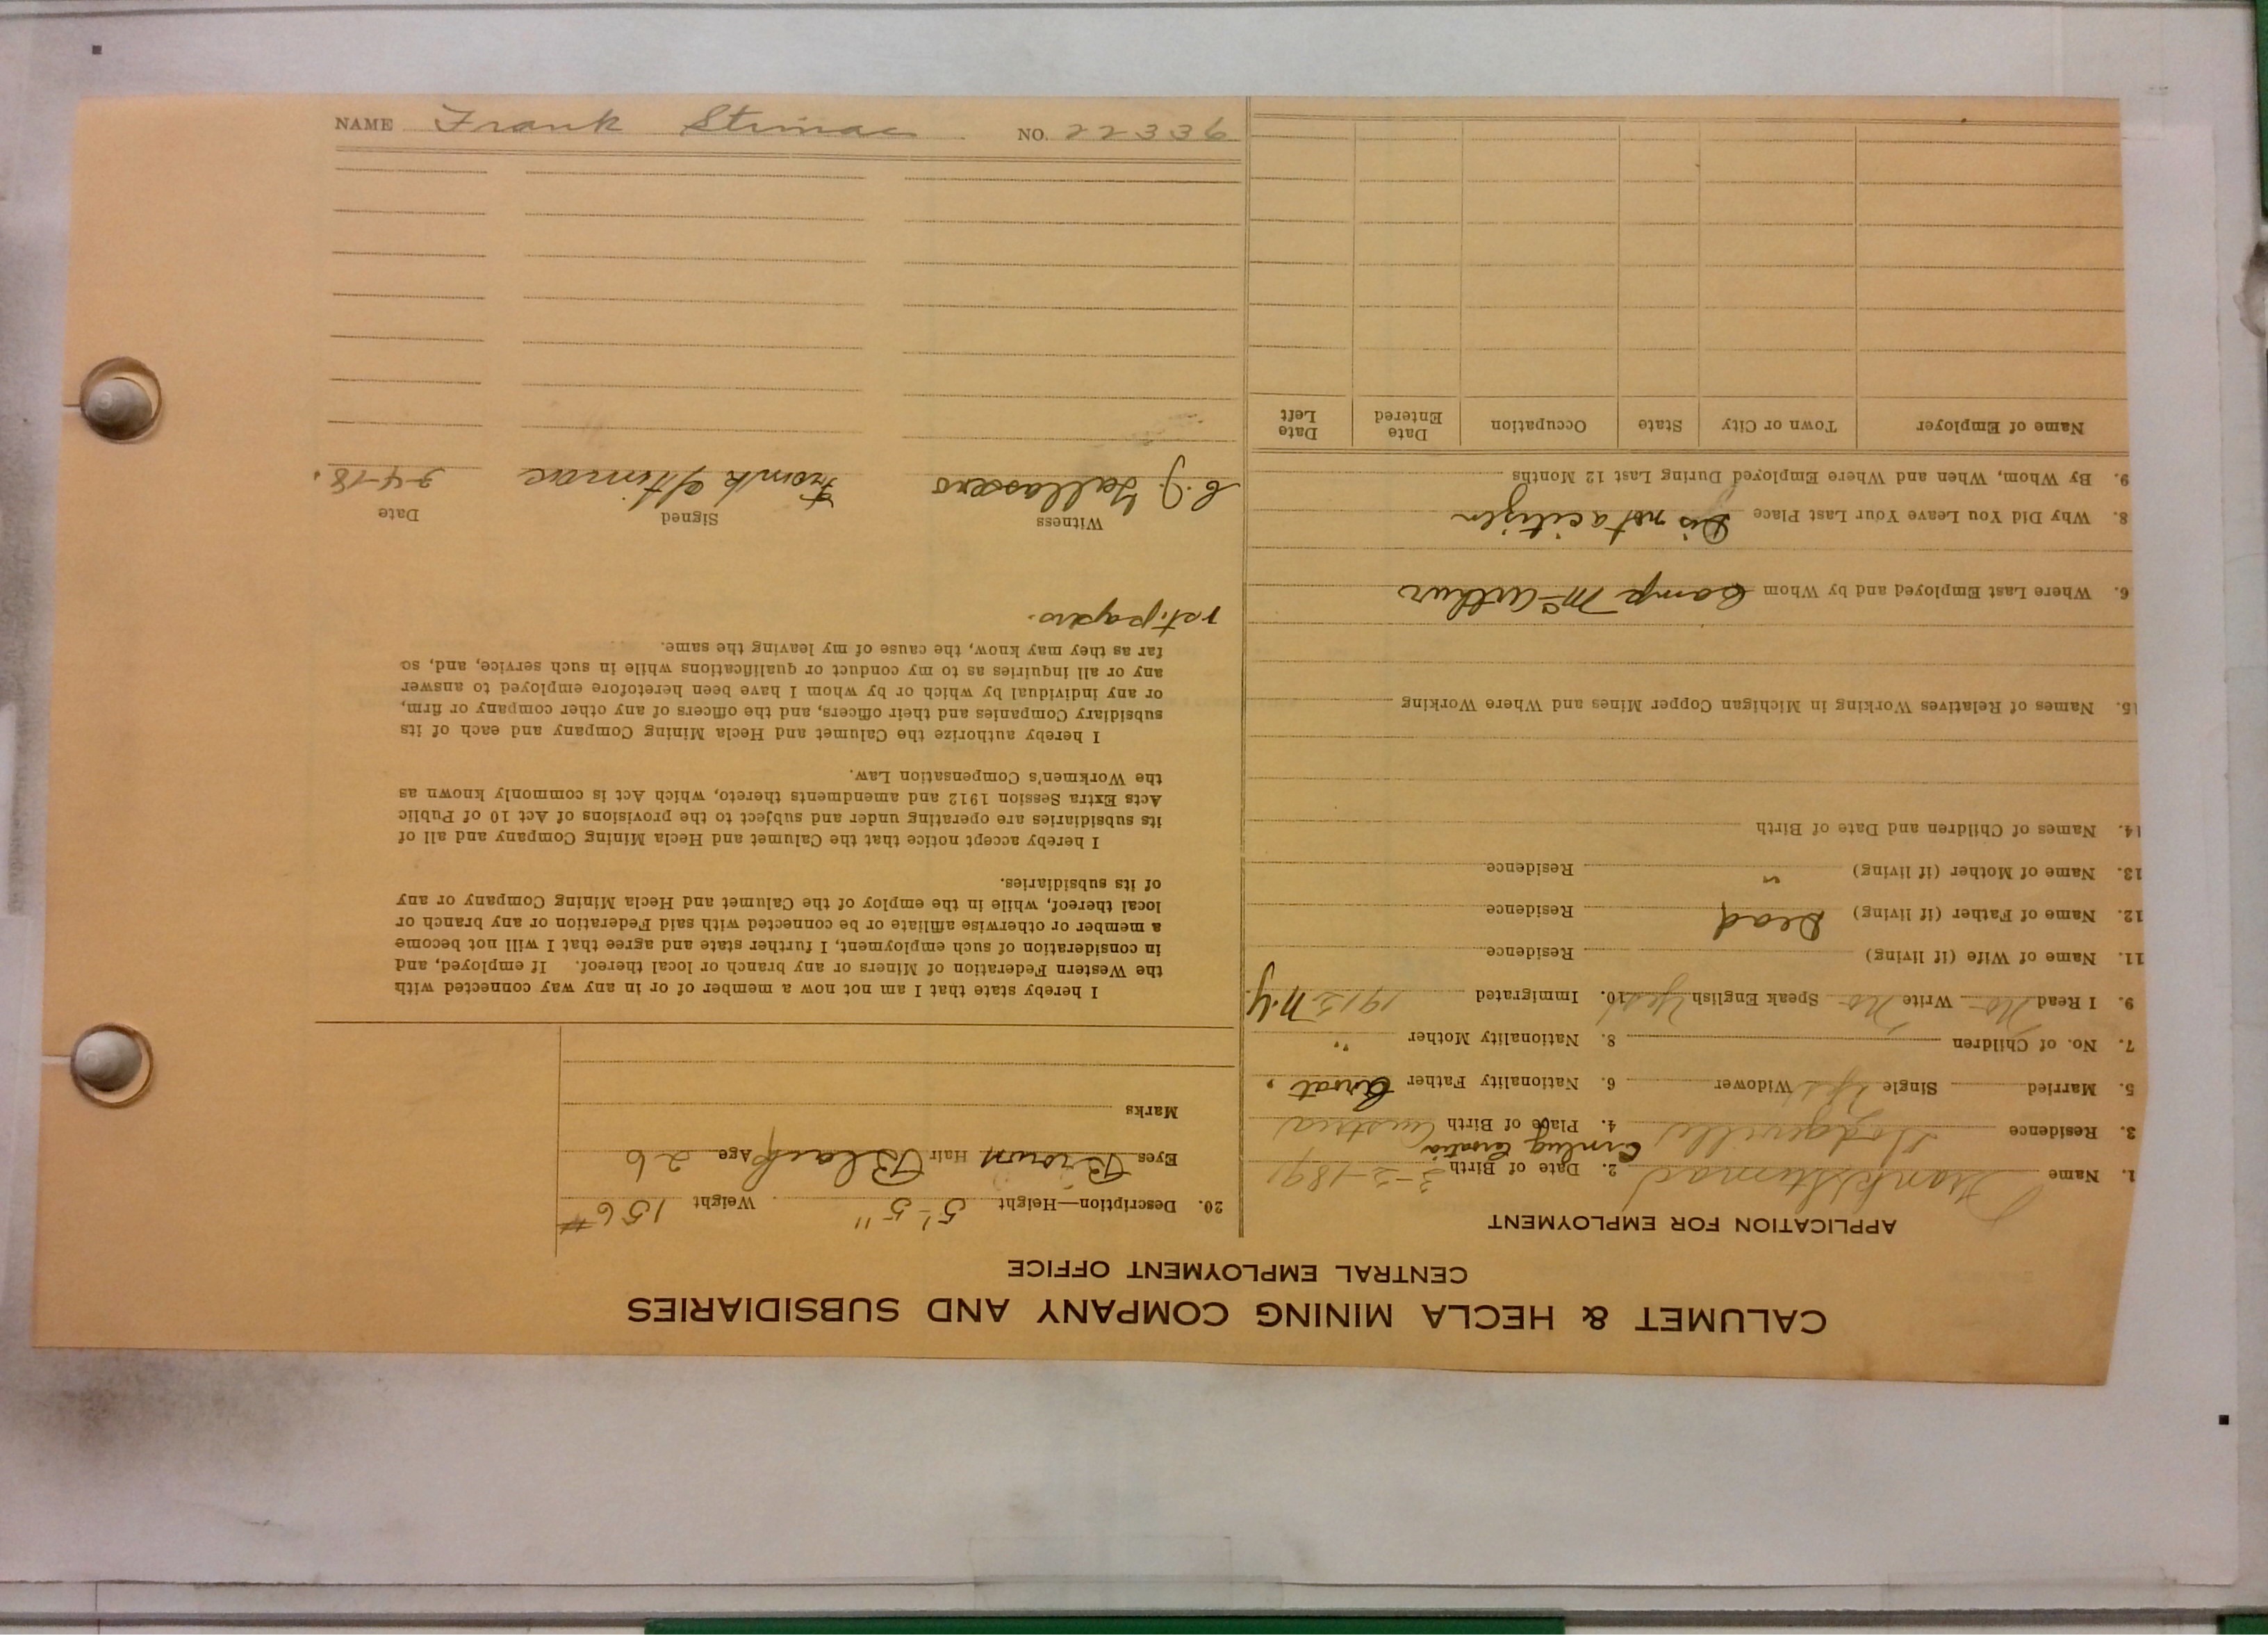 CALUMET & HECLA MINING COMPANY AND SUBSIDIARIES
CENTRAL EMPLOYMENT OFFICE
APPLICATION FOR EMPLOYMENT
1. Name Frank Stimac 2. Date of Birth 3-3-1891
3. Residence Dodgeville 4. Place of Birth Austria
Croatia
5. Married Single Yes Widower 6. Nationality Father Croat
7. No. of Children 8. Nationality Mother "
9. I Read No Write No Speak English Yes 10. Immigrated 1913 N.Y
11. Name of Wife (if living) Residence
12. Name of Father (if living) Dead Residence
13. Name of Mother (if living) " Residence
14. Names of Children and Date of Birth
15. Names of Relatives Working in Michigan Copper Mines and Where Working
6. Where Last Employed and by Whom Camp McArthur
8. Why Did You Leave Your Last Place Is not a citizen
9. By Whom, When and Where Employed During Last 12 Months
Name of Employer Town or City State Occupation Date Entered Date Left
20. Description—Height 5'-5" Weight 156#
Eyes Brown Hair Black Age 26
Marks
I hereby state that I am not now a member of or in any way connected with
the Western Federation of Miners or any branch or local thereof. If employed, and
in consideration of such employment, I further state and agree that I will not become
a member or otherwise affiliate or be connected with said Federation or any branch or
local thereof, while in the employ of the Calumet and Hecla Mining Company or any
of its subsidiaries.
I hereby accept notice that the Calumet and Hecla Mining Company and all of
its subsidiaries are operating under and subject to the provisions of Act 10 of Public
Acts Extra Session 1912 and amendments thereto, which Act is commonly known as
the Workmen's Compensation Law.
I hereby authorize the Calumet and Hecla Mining Company and each of its
subsidiary Companies and their officers, and the officers of any other company or firm,
or any individual by which or by whom I have been heretofore employed to answer
any or all inquiries as to my conduct or qualifications while in such service, and, so
far as they may know, the cause of my leaving the same.
1st papers.
Witness Signed Date
Frank Stimac 3-4-18.
NAME Frank Stimac NO. 22336